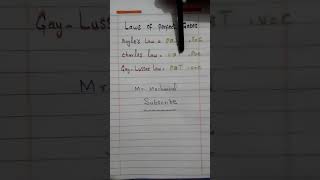 Laws of Perfect Gases
Boyle's Law =
Charles Law =
Gay-Lussac Law = P∝T , V=C
Mr. Mechanical
Subscribe